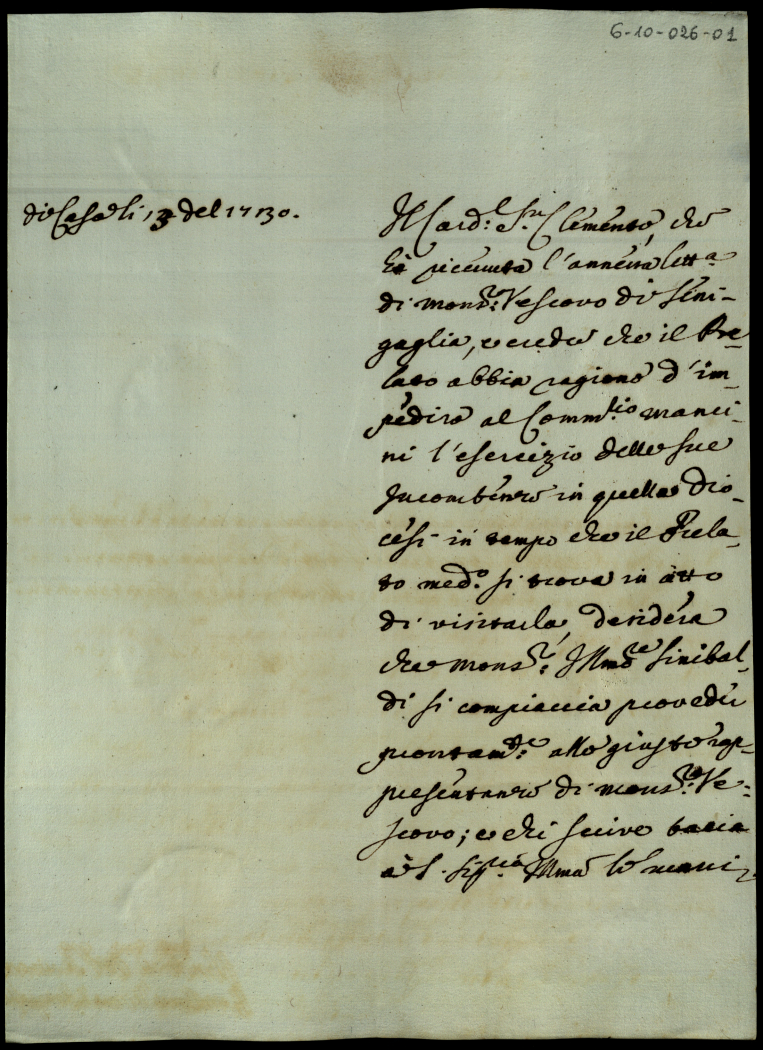 6-10-026-01
di Casa li 13 del 1730.
Il Card.l S.n Clemente, che
hà riceuuta l'annessa lett.a
di mons.re Vescovo di Sini-
gaglia, e crede che il Pre-
lato abbia ragione d'im-
pedire al Comm.rio manci-
ni l'esercizio delle sue
Incombenze in quella Dio-
cesi in tempo che il Prela-
to med.o si trova in atto
di visitarla, desidera
che mons.re Illmo Sinibal-
di si compiaccia provedere
prontam.te alle giuste rap-
presentanze di mons.re Ve-
scovo; e chi scrive bacia
à V. Sig.ria Illma le mani.